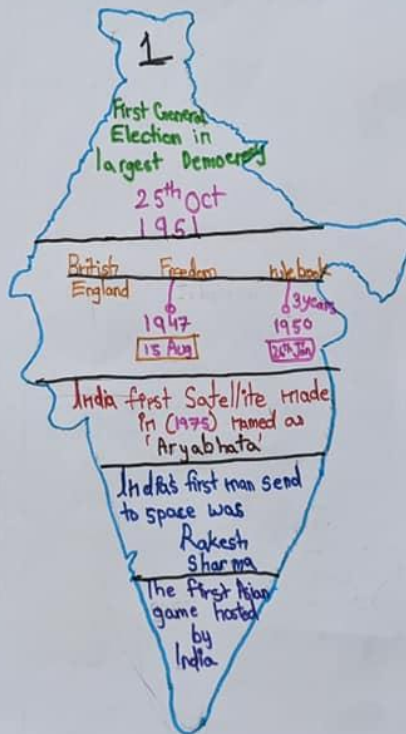 1
First General
Election in
largest Democracy
25th Oct
1951
British Freedom rulebook
England
3years
1947 1950
15 Aug 26th Jan
India first Satellite made
in (1975) named as
'Aryabhata'
India's first man send
to space was
Rakesh
Sharma
The first Asian
game hosted
by
India